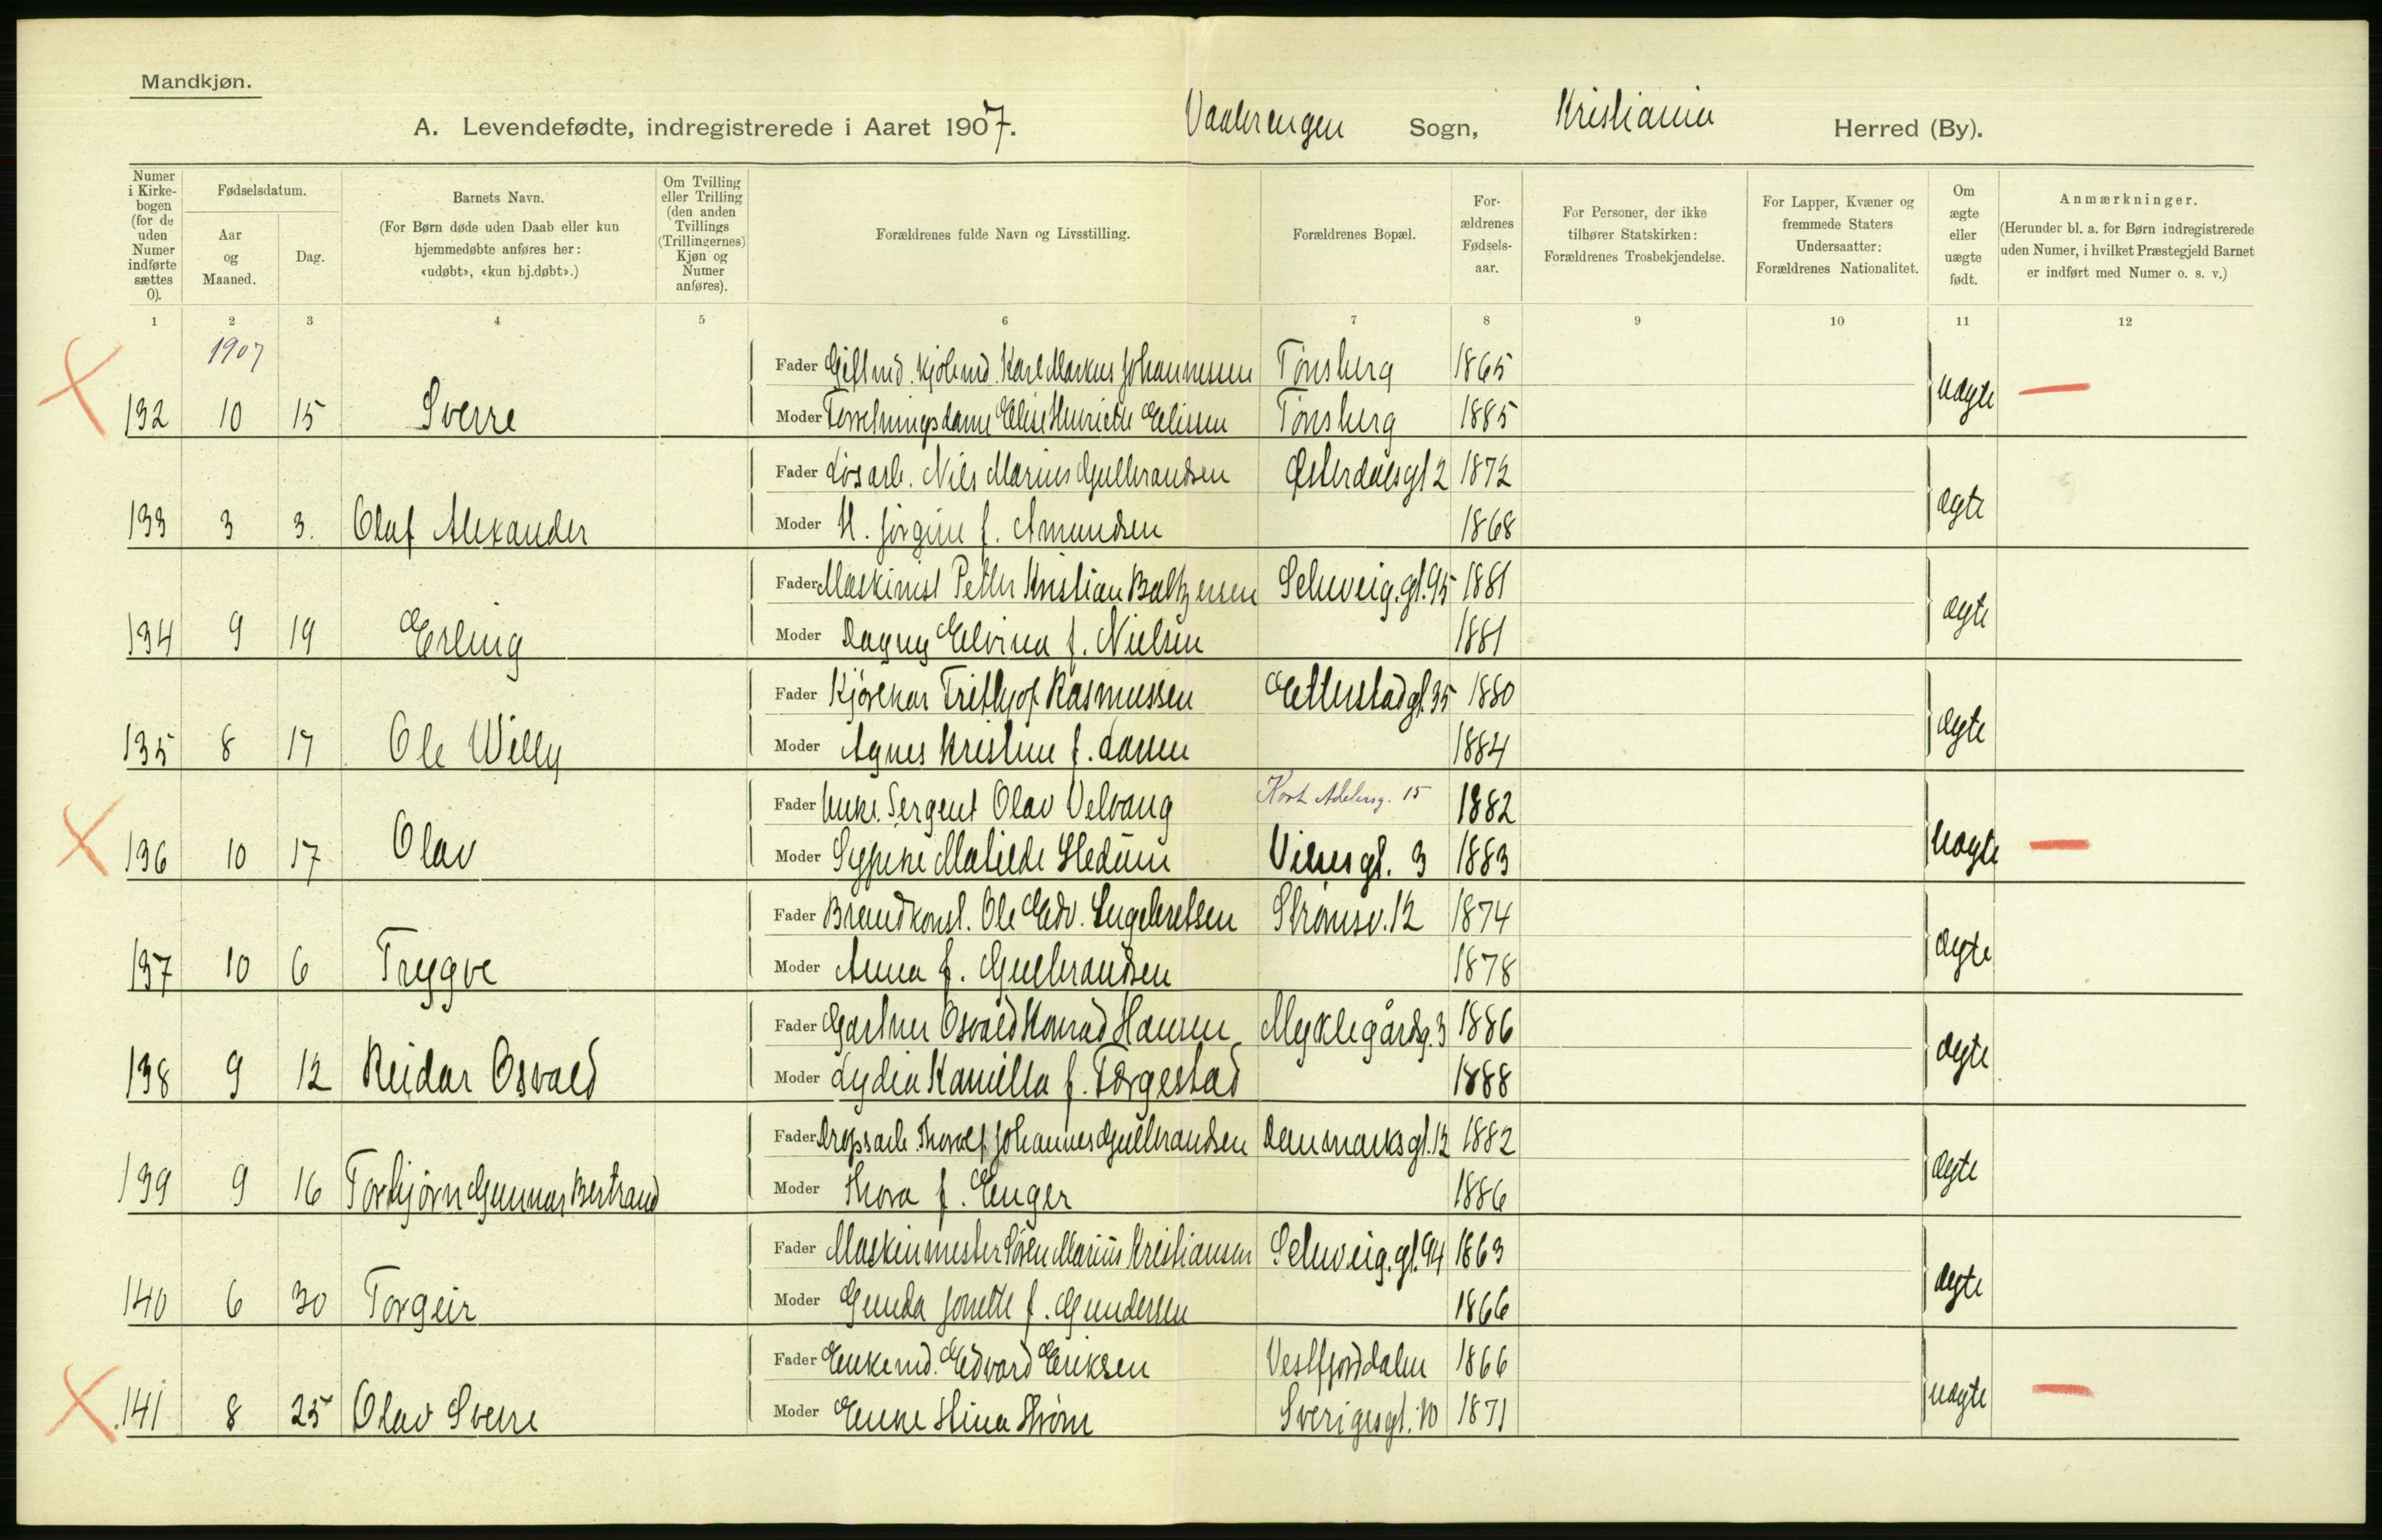 Mandkjøn.
A. Levendefødte, indregistrerede i Aaret 1907. Vaalerengen Sogn, Kristiania Herred (By).
Numer i Kirkebogen (for de uden Numer indførte sættes 0).
Fødselsdatum.
Aar og Maaned.
Dag.
Barnets Navn.
(For Børn døde uden Daab eller kun hjemmedøbte anføres her: «udøbt», «kun hj.døbt».)
Om Tvilling eller Trilling (den anden Tvillings (Trillingernes) Kjøn og Numer anføres).
Forældrenes fulde Navn og Livsstilling.
Forældrenes Bopæl.
Forældrenes Fødselsaar.
For Personer, der ikke tilhører Statskirken: Forældrenes Trosbekjendelse.
For Lapper, Kvæner og fremmede Staters Undersaatter: Forældrenes Nationalitet.
Om ægte eller uægte født.
Anmærkninger.
(Herunder bl. a. for Børn indregistrerede uden Numer, i hvilket Præstegjeld Barnet er indført med Numer o. s. v.)
1 2 3 4 5 6 7 8 9 10 11 12
1907
Fader Gift md. Kjøbmd. Karl Markus Johannessen Tønsberg 1865
132 10 15 Sverre Moder Forretningsdame Elise Henriette Ellisen Tønsberg 1885 uægte —
Fader Løsarb. Nils Marius Gulbrandsen Østerdalsgt 2 1872
133 3 3. Olaf Alexander Moder H. Jørgine f. Amundsen 1868 ægte
Fader Maskinist Petter Kristian Baltzersen Schweig.gt.95 1881
134 9 19 Erling Moder Dagny Elvina f. Nielsen 1881 ægte
Fader Kjørekar Frithjof Rasmussen Etterstadgt.35 1880
135 8 17 Ole Willy Moder Agnes Kristine f. Larsen 1884 ægte
Fader Unke. Sergent Olav Velvang Kort Adelersg. 15 1882
136 10 17 Olav Moder Matilde Hledum gt. 3 1883 uægte —
Fader Brandkonst. Ole Edv. Engebretsen Strømsv.12 1874
137 10 6 Trygve Moder Anna f. Gulbrandsen 1878 ægte
Fader Gartner Osvald Konrad Hansen Myklegårdsg.3 1886
138 9 12 Reidar Osvald Moder Lydia Kamilla f. Torgestad 1888 ægte
Fader Dropsarb. Thorolf Johannes Gulbrandsen Danmarksgt.12 1882
139 9 16 Torbjørn Gunnar Bertrand Moder Thora f. Enger 1886 ægte
Fader Maskinmester Søren Marius Kristiansen Schweig.gt.94 1863
140 6 30 Torgeir Moder Gunda Jonette f. Gundersen 1866 ægte
Fader Enkemd. Edvard Eriksen Vestfjorddalen 1866
141 8 25 Olav Sverre Moder Enke Stina Strøm Sverigesgt. 10 1871 uægte —